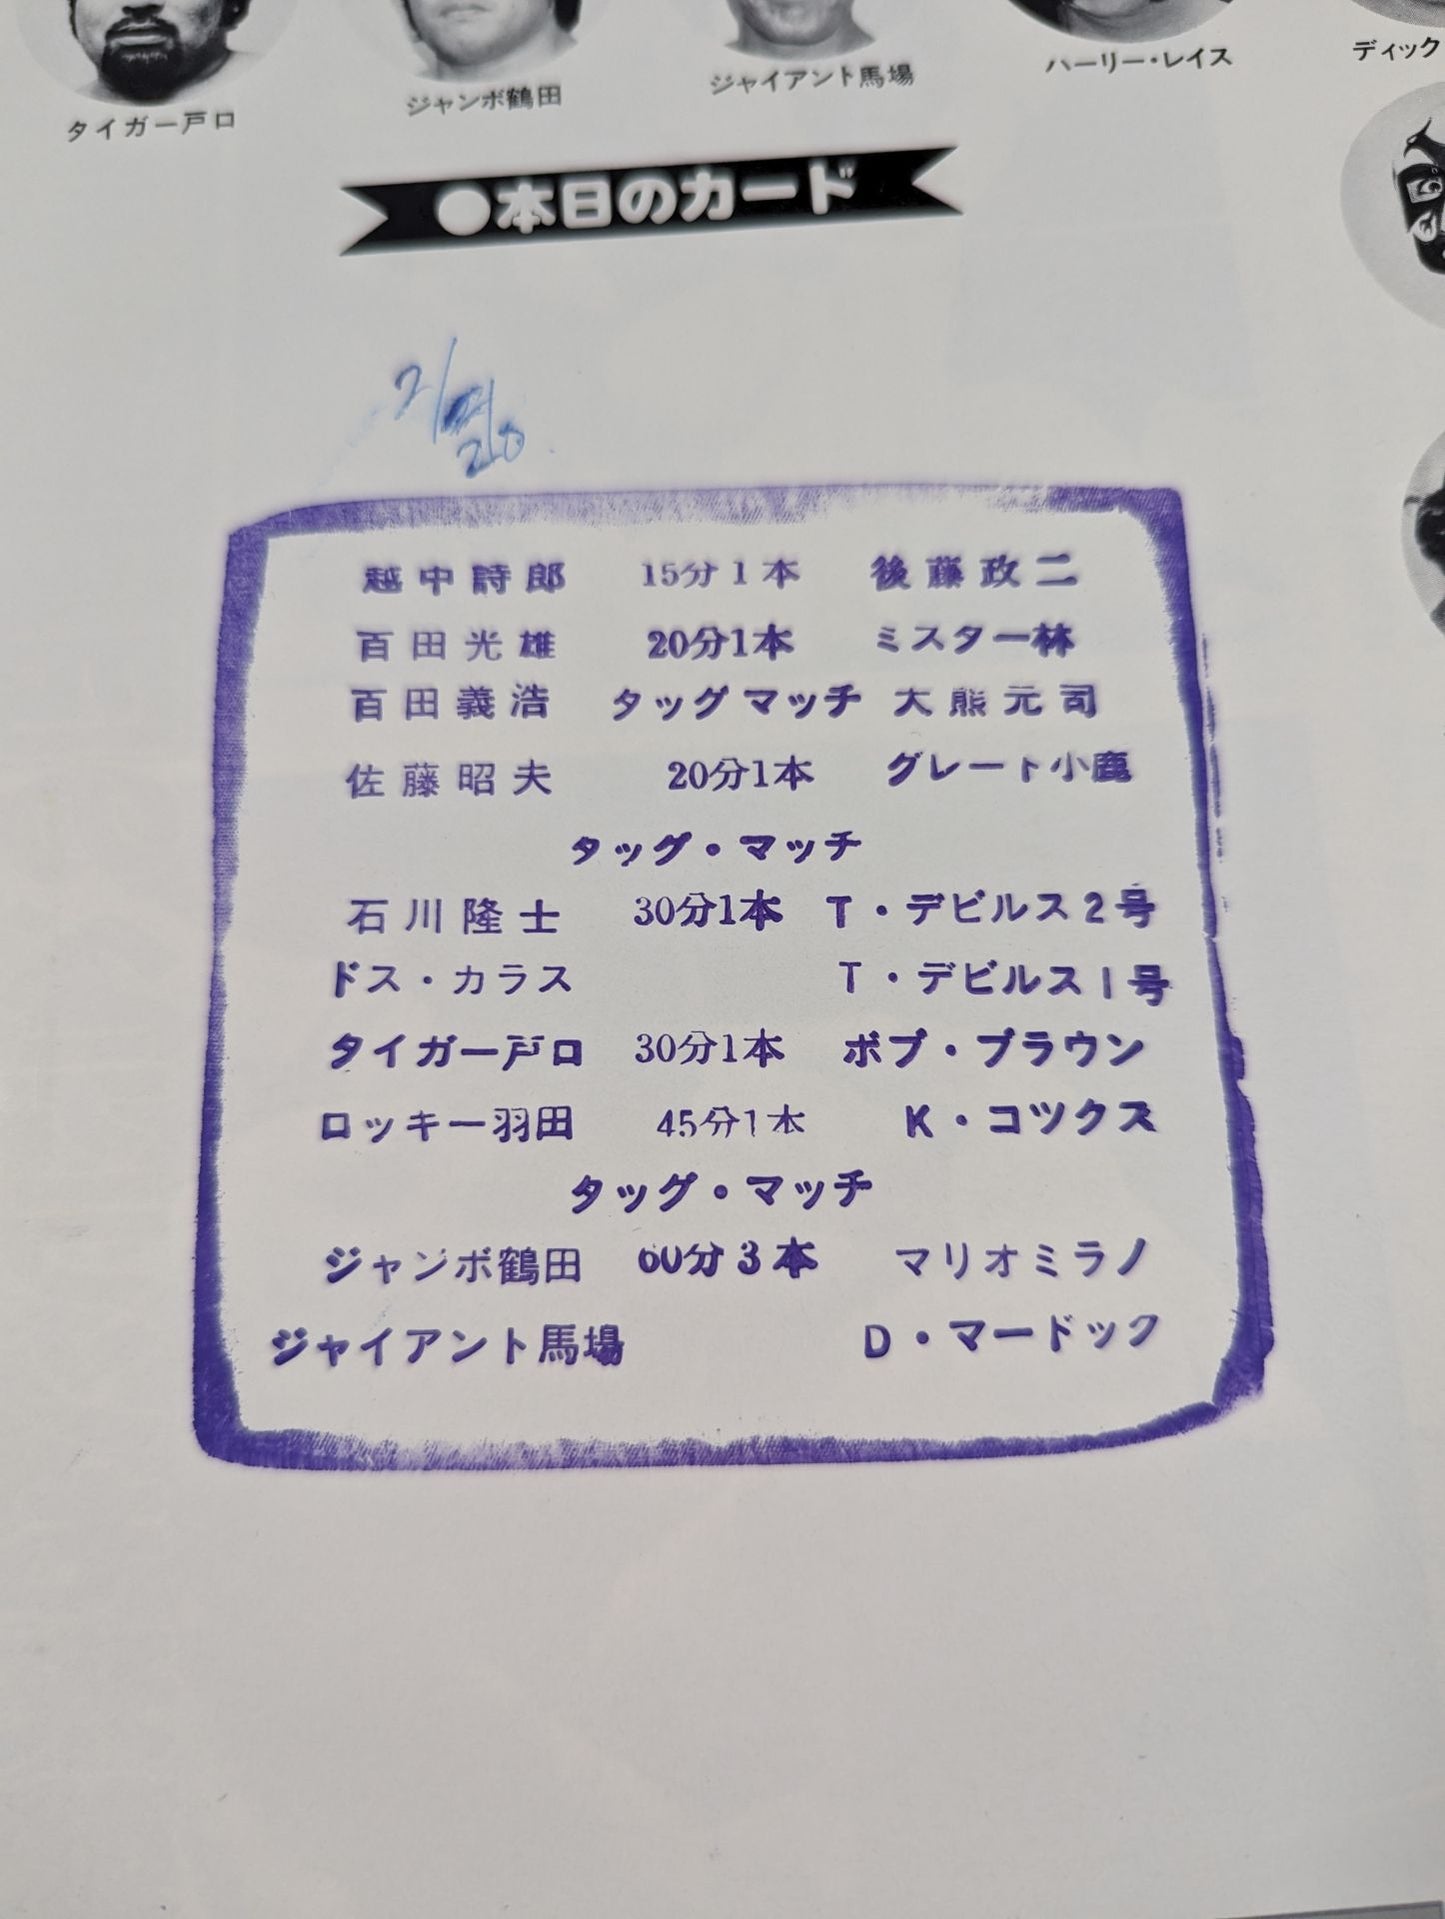 タイガー戸口
ジャンボ鶴田
ジャイアント馬場
ハーリー・レイス
ディック
●本日のカード
越中詩郎 15分1本 後藤政二
百田光雄 20分1本 ミスター林
百田義浩 タッグマッチ 大熊元司
佐藤昭夫 20分1本 グレート小鹿
タッグ・マッチ
石川隆士 30分1本 T・デビルス2号
ドス・カラス T・デビルス1号
タイガー戸口 30分1本 ボブ・ブラウン
ロッキー羽田 45分1本 K・コツクス
タッグ・マッチ
ジャンボ鶴田 60分3本 マリオミラノ
ジャイアント馬場 D・マードック